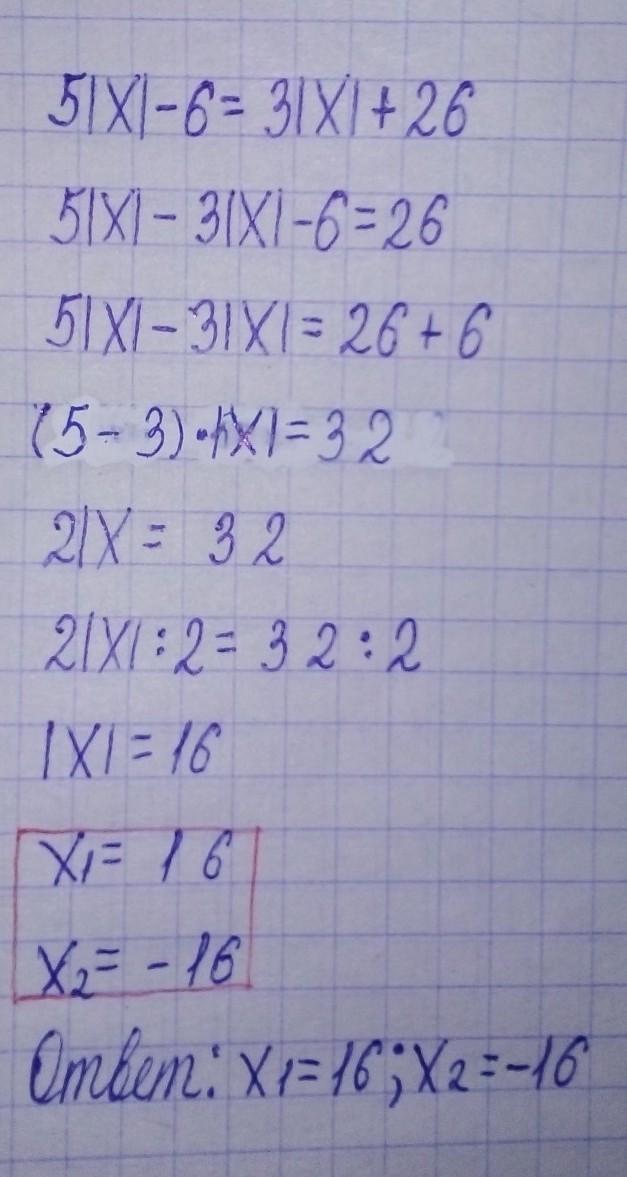 5|X|-6= 3|X|+26
5|X|-3|X|-6=26
5|X|-3|X|=26+6
(5-3)·|X|=32
2|X= 32
2|X|:2= 32:2
|X|=16
X1= 16
X2= -16
Ответ: X1=16; X2=-16